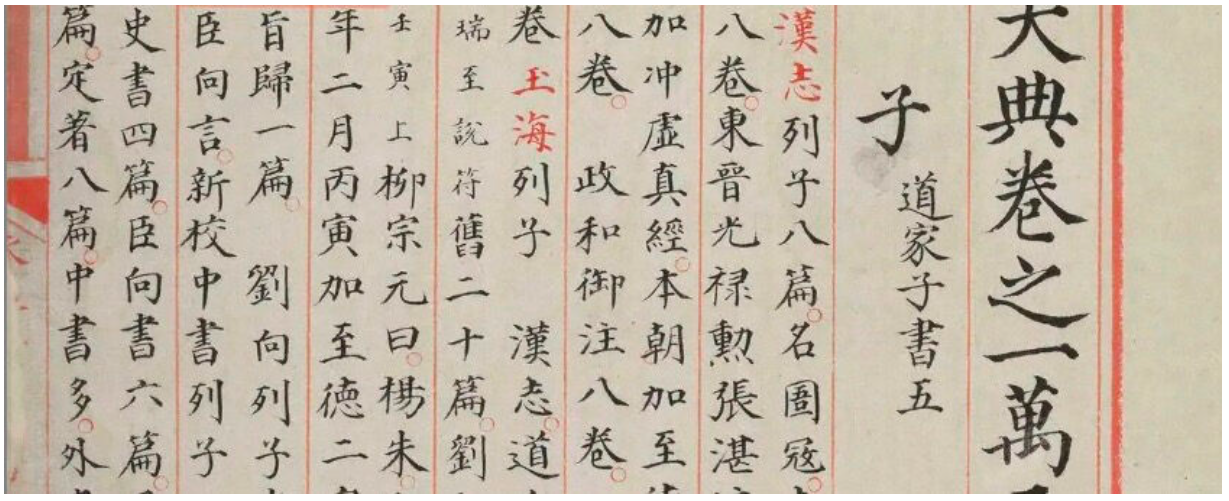 大典卷之一萬
子 道家子書五
漢志列子八篇。名圄冦
八卷。東晉光禄勲張湛
加冲虛真經。本朝加至
八卷。 政和御注八卷。
卷 玉海列子 漢志。道
瑞至說符舊二十篇。劉
壬寅上柳宗元曰。楊朱
年二月丙寅加至徳二
旨歸一篇。 劉向列子
臣向言。新校中書列子
史書四篇。臣向書六篇。
篇。定著八篇。中書多。外